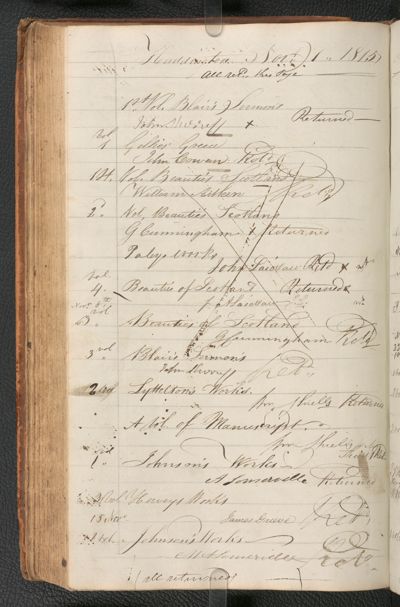 Haddington Novr. 1. 1815
all retd. this Page
1st Vol. Blair's Sermons
Returned
vol 1 Gillies Greece
John Cowan Retd.
1st. Vol. Beauties Scotland
William Aitken Retd.
2. Vol. Beauties Scotland
G Cunningham Returned
Paleys works
John Laidlaw Retd x
vol 4. Beauties of Scotland Returned
J Laidlaw
Novr. 6th
vol 5 Beauties of Scotland
G Cunningham Retd.
3 vol Blair's Sermons
John Retd.
2 vol Lyttelton's Works.
Shiells Returned
A vol. of Manuscript
Shiells
vol 1. Johnson's Works
A Somerville Returned
vol. Herveys Works
13 Novr. James Greeve Retd.
1 vol. Johnson's Works
A Somerville Retd.
all returned